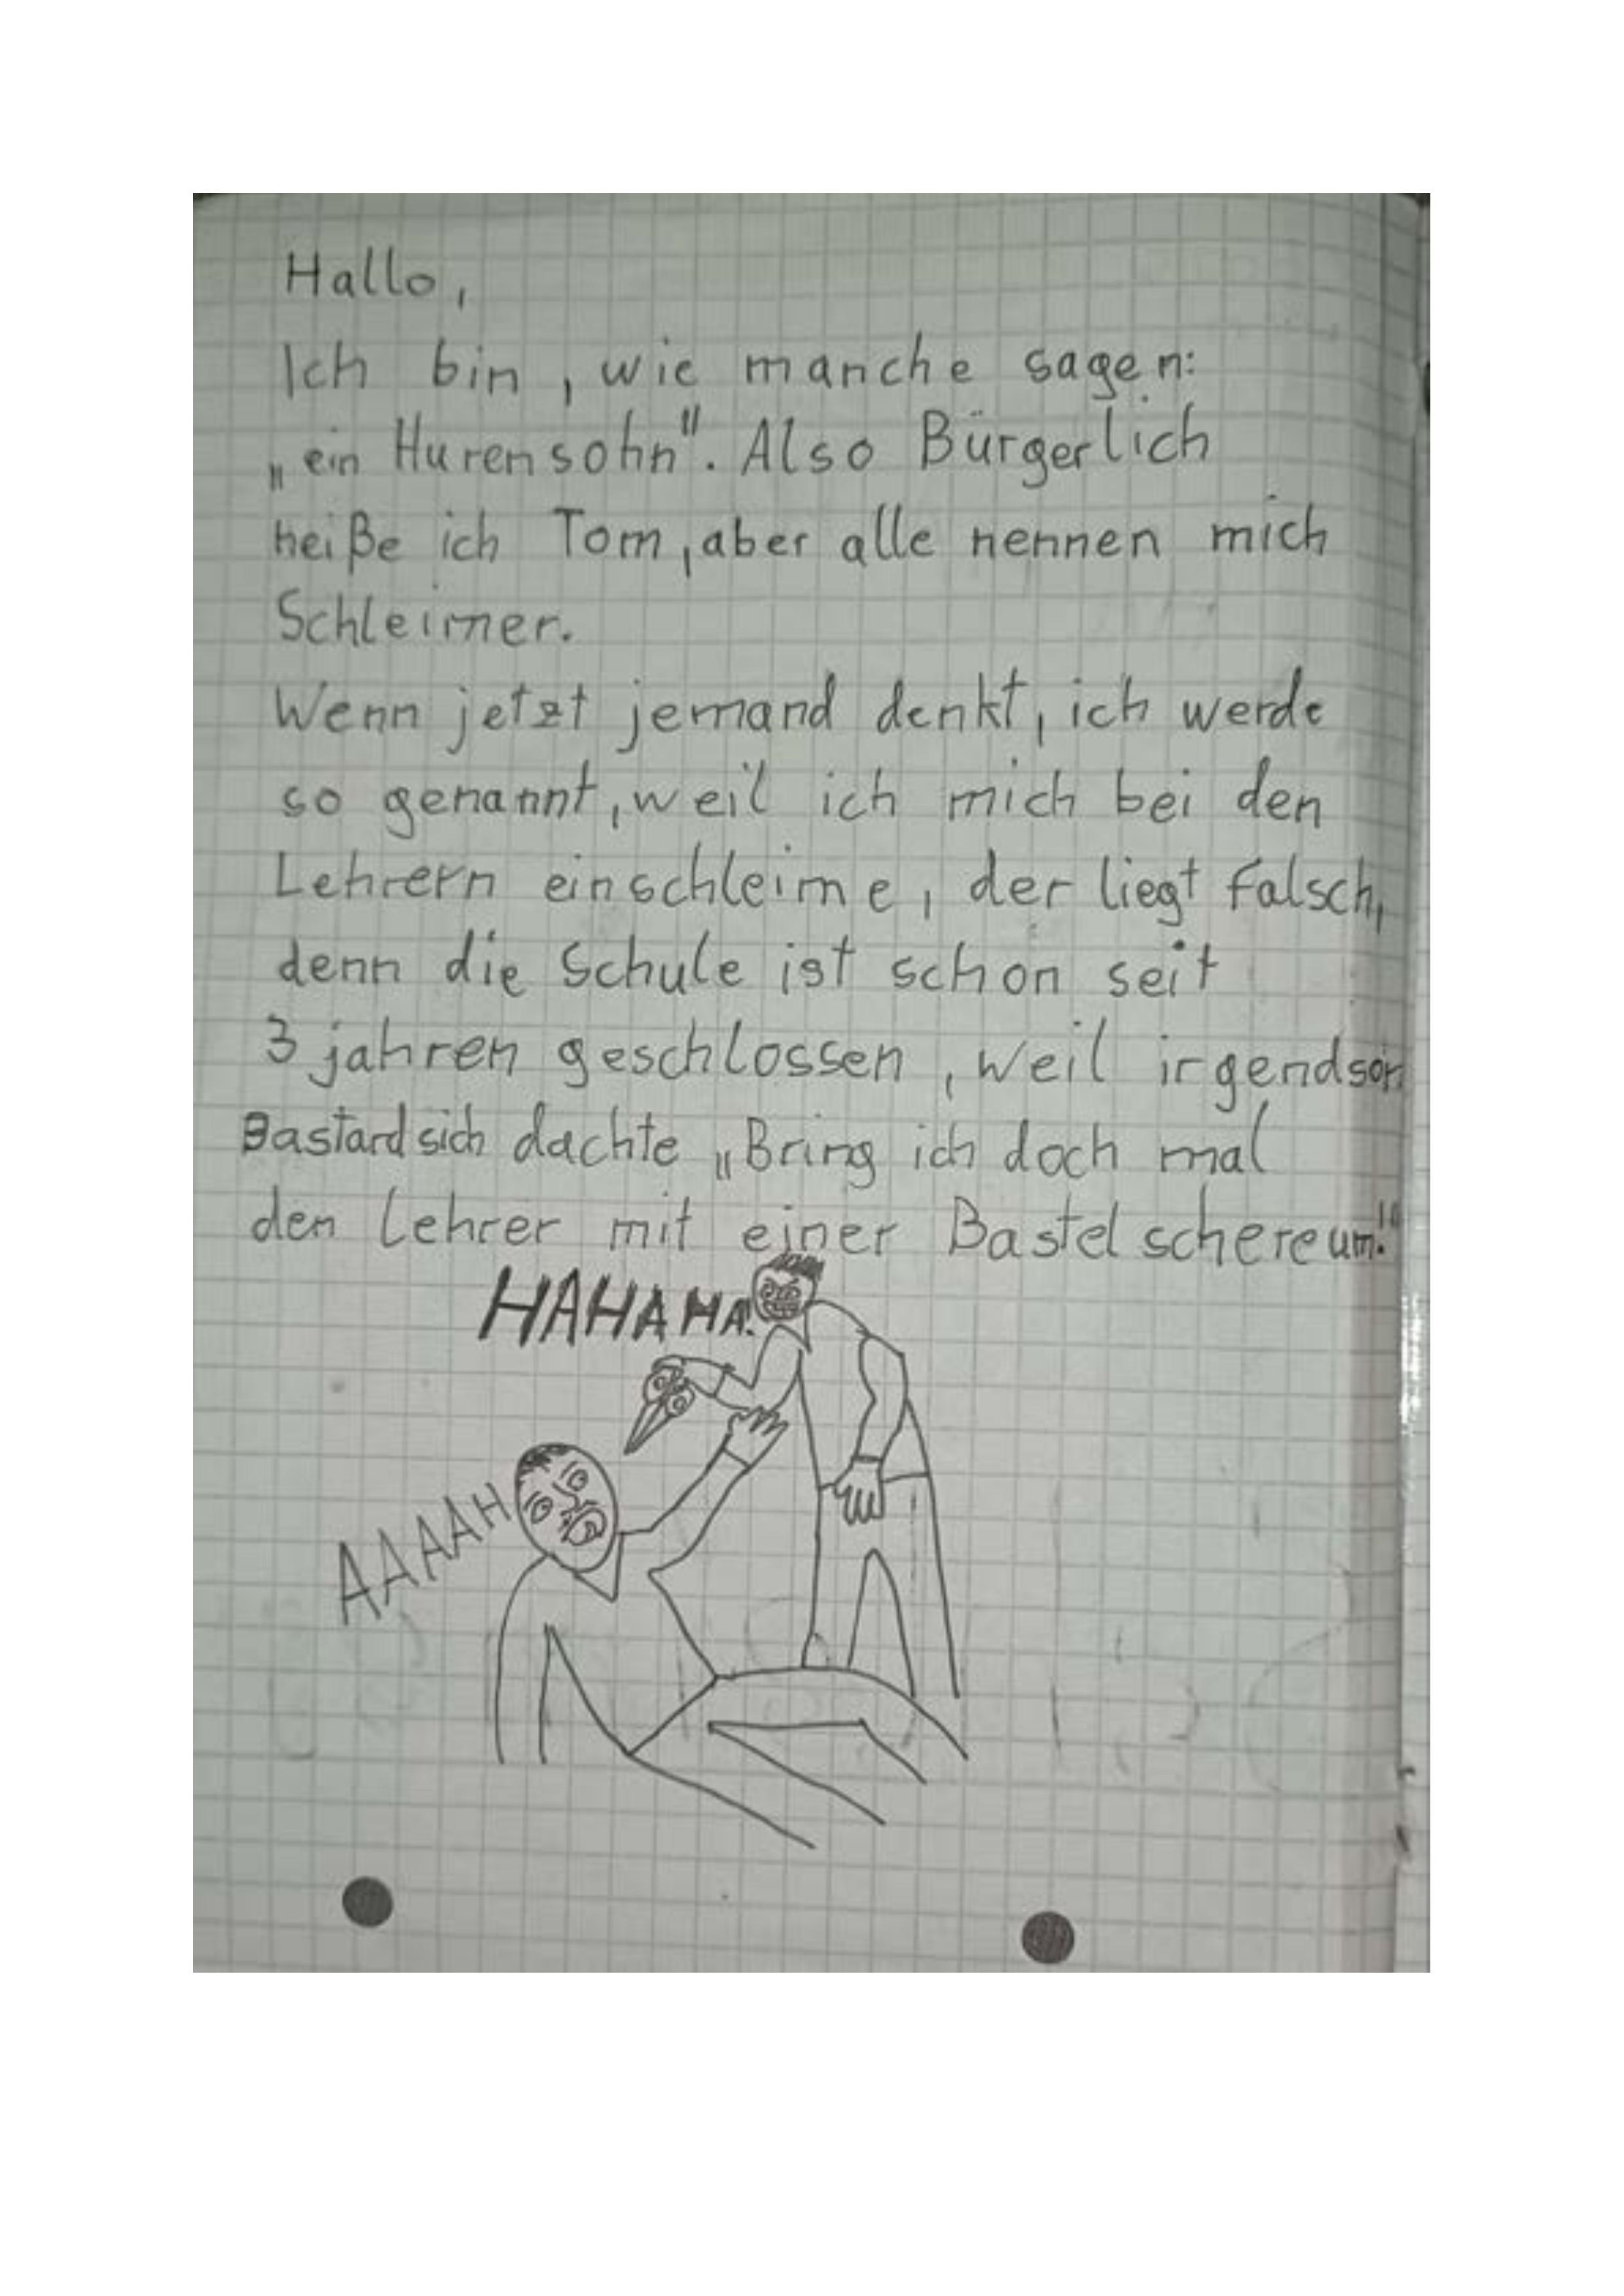 Hallo,
Ich bin, wie manche sagen:
„ein Hurensohn". Also Bürgerlich
heiße ich Tom, aber alle nennen mich
Schleimer.
Wenn jetzt jemand denkt, ich werde
so genannt, weil ich mich bei den
Lehrern einschleime, der liegt falsch,
denn die Schule ist schon seit
3 jahren geschlossen, weil irgendson
Bastard sich dachte „Bring ich doch mal
den Lehrer mit einer Bastelschere um!"
HAHAHA!
AAAAH